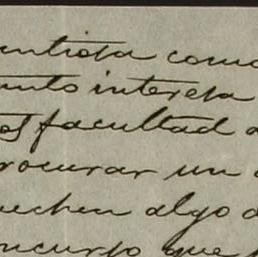 entista como
unto interesa
os facultad a
rocurar un a
uechen algo d
oncurso que p